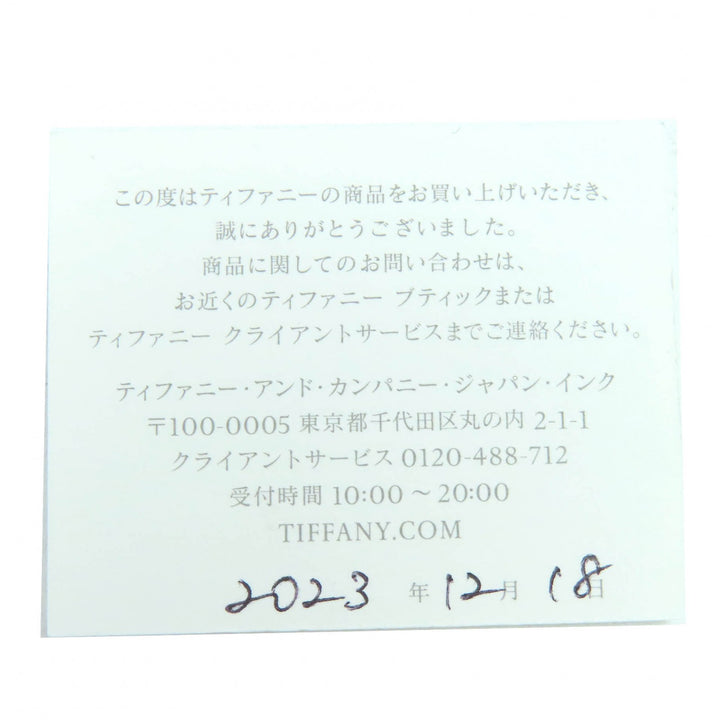 この度はティファニーの商品をお買い上げいただき、
誠にありがとうございました。
商品に関してのお問い合わせは、
お近くのティファニー ブティックまたは
ティファニー クライアントサービスまでご連絡ください。
ティファニー・アンド・カンパニー・ジャパン・インク
〒100-0005 東京都千代田区丸の内 2-1-1
クライアントサービス 0120-488-712
受付時間 10:00 〜 20:00
TIFFANY.COM
2023 年 12 月 18 日